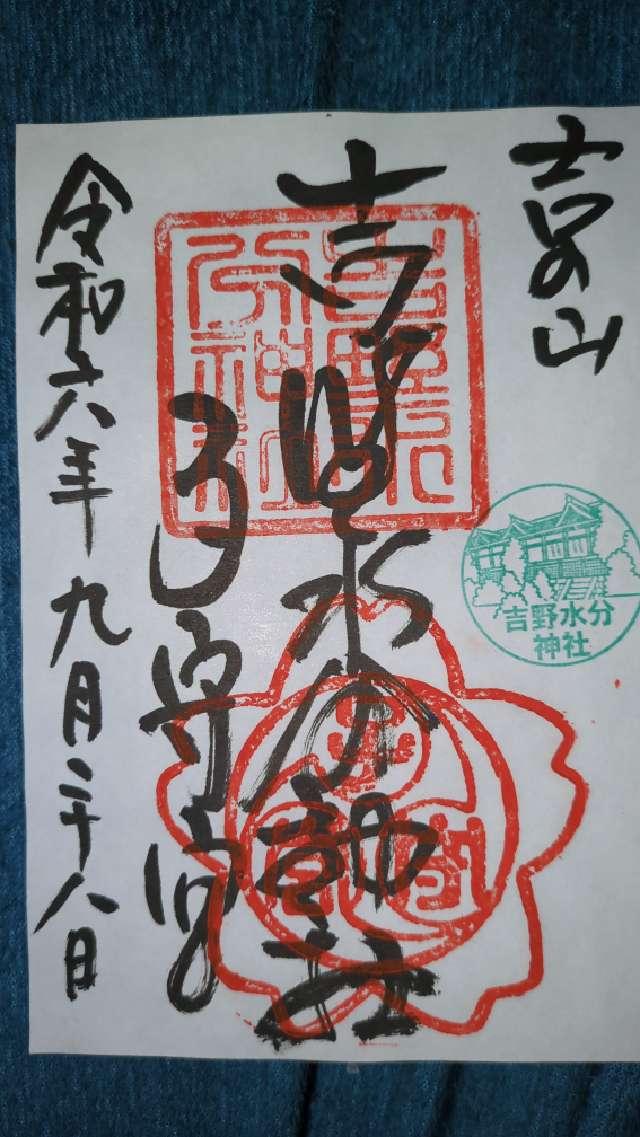 吉野山
吉野水分神社
子守宮
令和六年九月二十八日
吉野水分神社
吉野水分
神社
子守宮